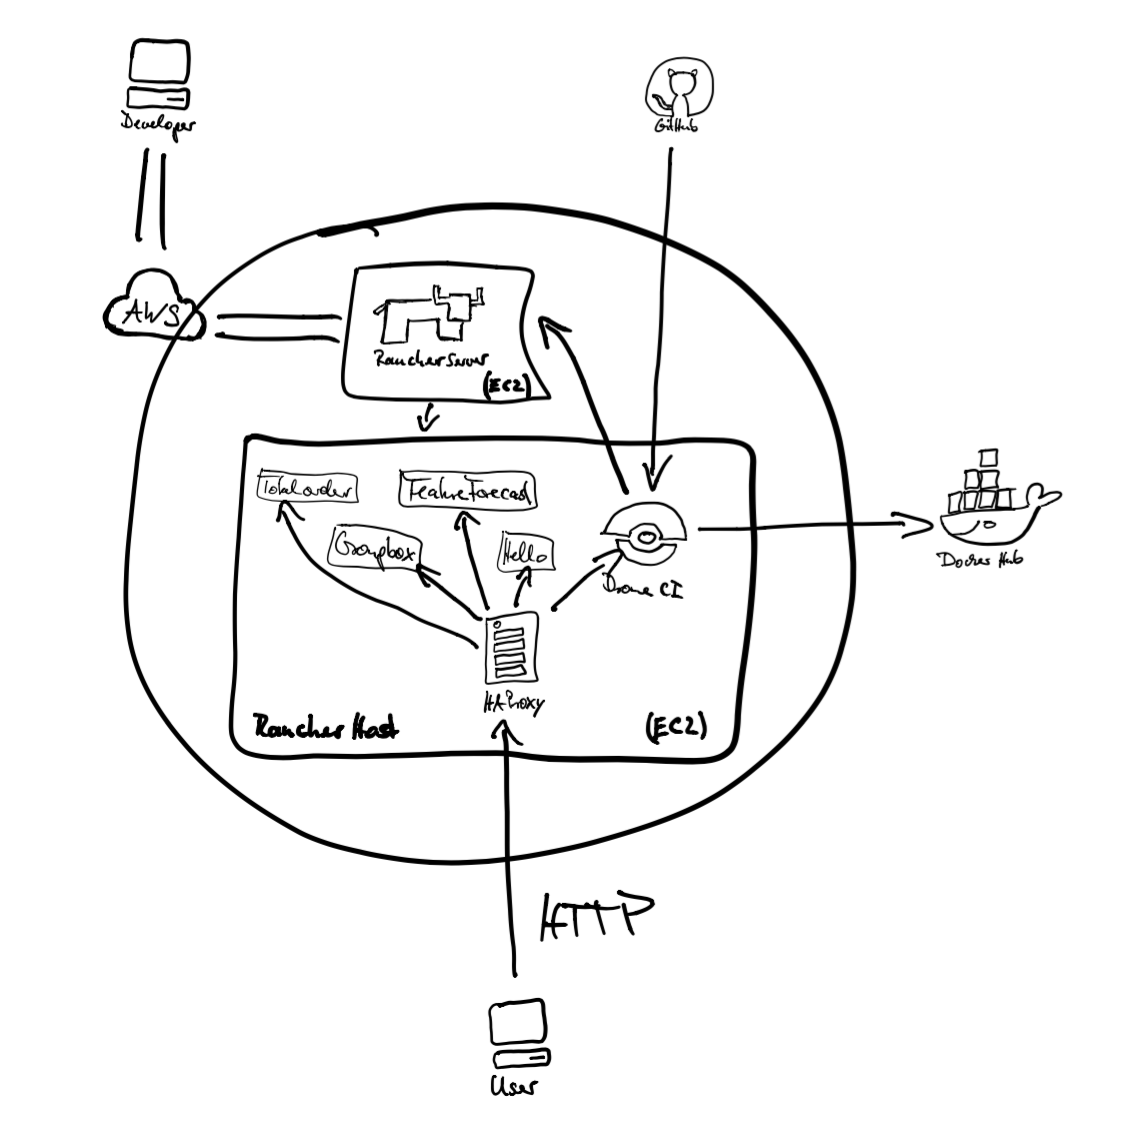 Developer
GitHub
AWS
Rancher Server
(EC2)
Totalorder
FeatureForecast
Groupbox
Hello
Drone CI
Docker Hub
HAProxy
Rancher Host
(EC2)
HTTP
User